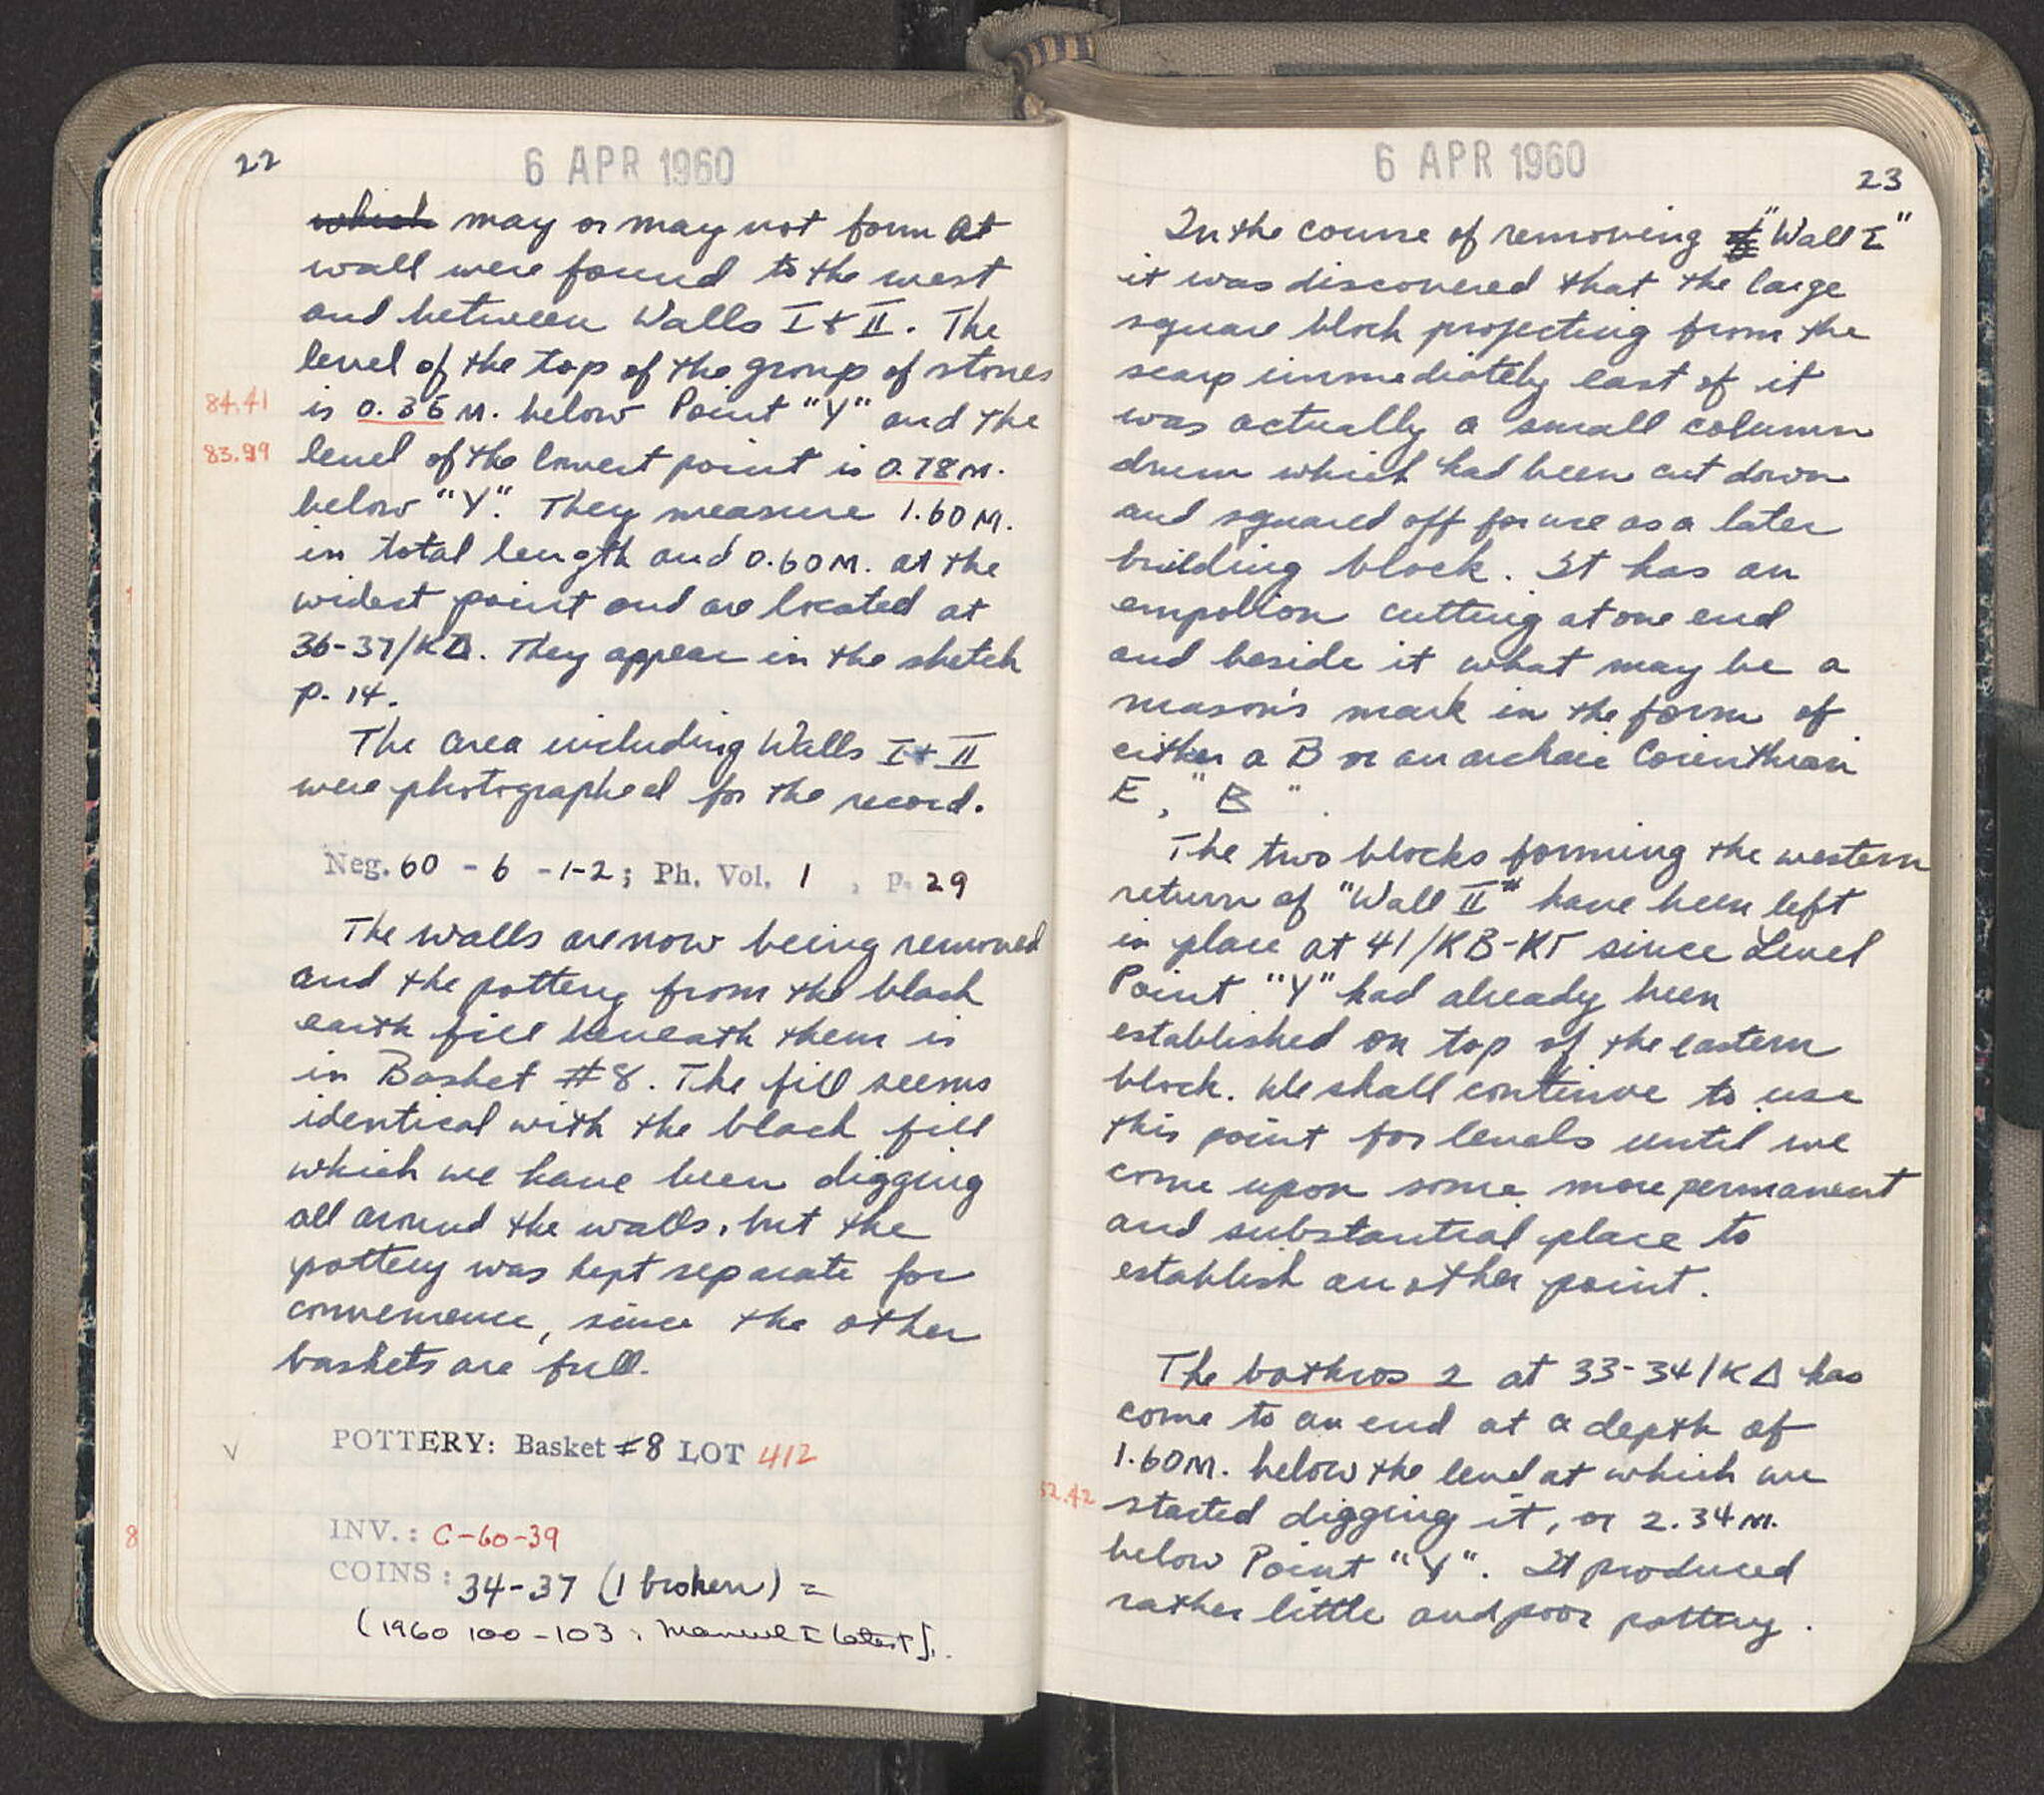 22
6 APR 1960
which may or may not form at
wall were found to the west
and between Walls I + II. The
level of the top of the group of stones
84.41
is 0.36 M. below Point "Y" and the
83.99
level of the lowest point is 0.78 M.
below "Y". They measure 1.60 M.
in total length and 0.60 M. at the
widest point and are located at
36-37/KΔ. They appear in the sketch
p. 14.
The area including Walls I + II
were photographed for the record.
Neg. 60 - 6 - 1-2; Ph. Vol. 1, p. 29
The walls are now being removed
and the pottery from the black
earth fill beneath them is
in Basket #8. The fill seems
identical with the black fill
which we have been digging
all around the walls, but the
pottery was kept separate for
convenience, since the other
baskets are full.
POTTERY: Basket #8 LOT 412
8
INV.: C-60-39
COINS: 34-37 (1 broken) =
(1960 100-103: Manuel I latest].
6 APR 1960
23
In the course of removing "Wall I"
it was discovered that the large
square block projecting from the
scarp immediately east of it
was actually a small column
drum which had been cut down
and squared off for use as a later
building block. It has an
empolion cutting at one end
and beside it what may be a
mason's mark in the form of
either a B or an archaic Corinthian
E, "B".
The two blocks forming the western
return of "Wall II" have been left
in place at 41/KB-KΓ since Level
Point "Y" had already been
established on top of the eastern
block. We shall continue to use
this point for levels until we
come upon some more permanent
and substantial place to
establish another point.
The bothros 2 at 33-34/KΔ has
come to an end at a depth of
1.60 M. below the level at which we
started digging it, or 2.34 M.
below Point "Y". It produced
rather little and poor pottery.